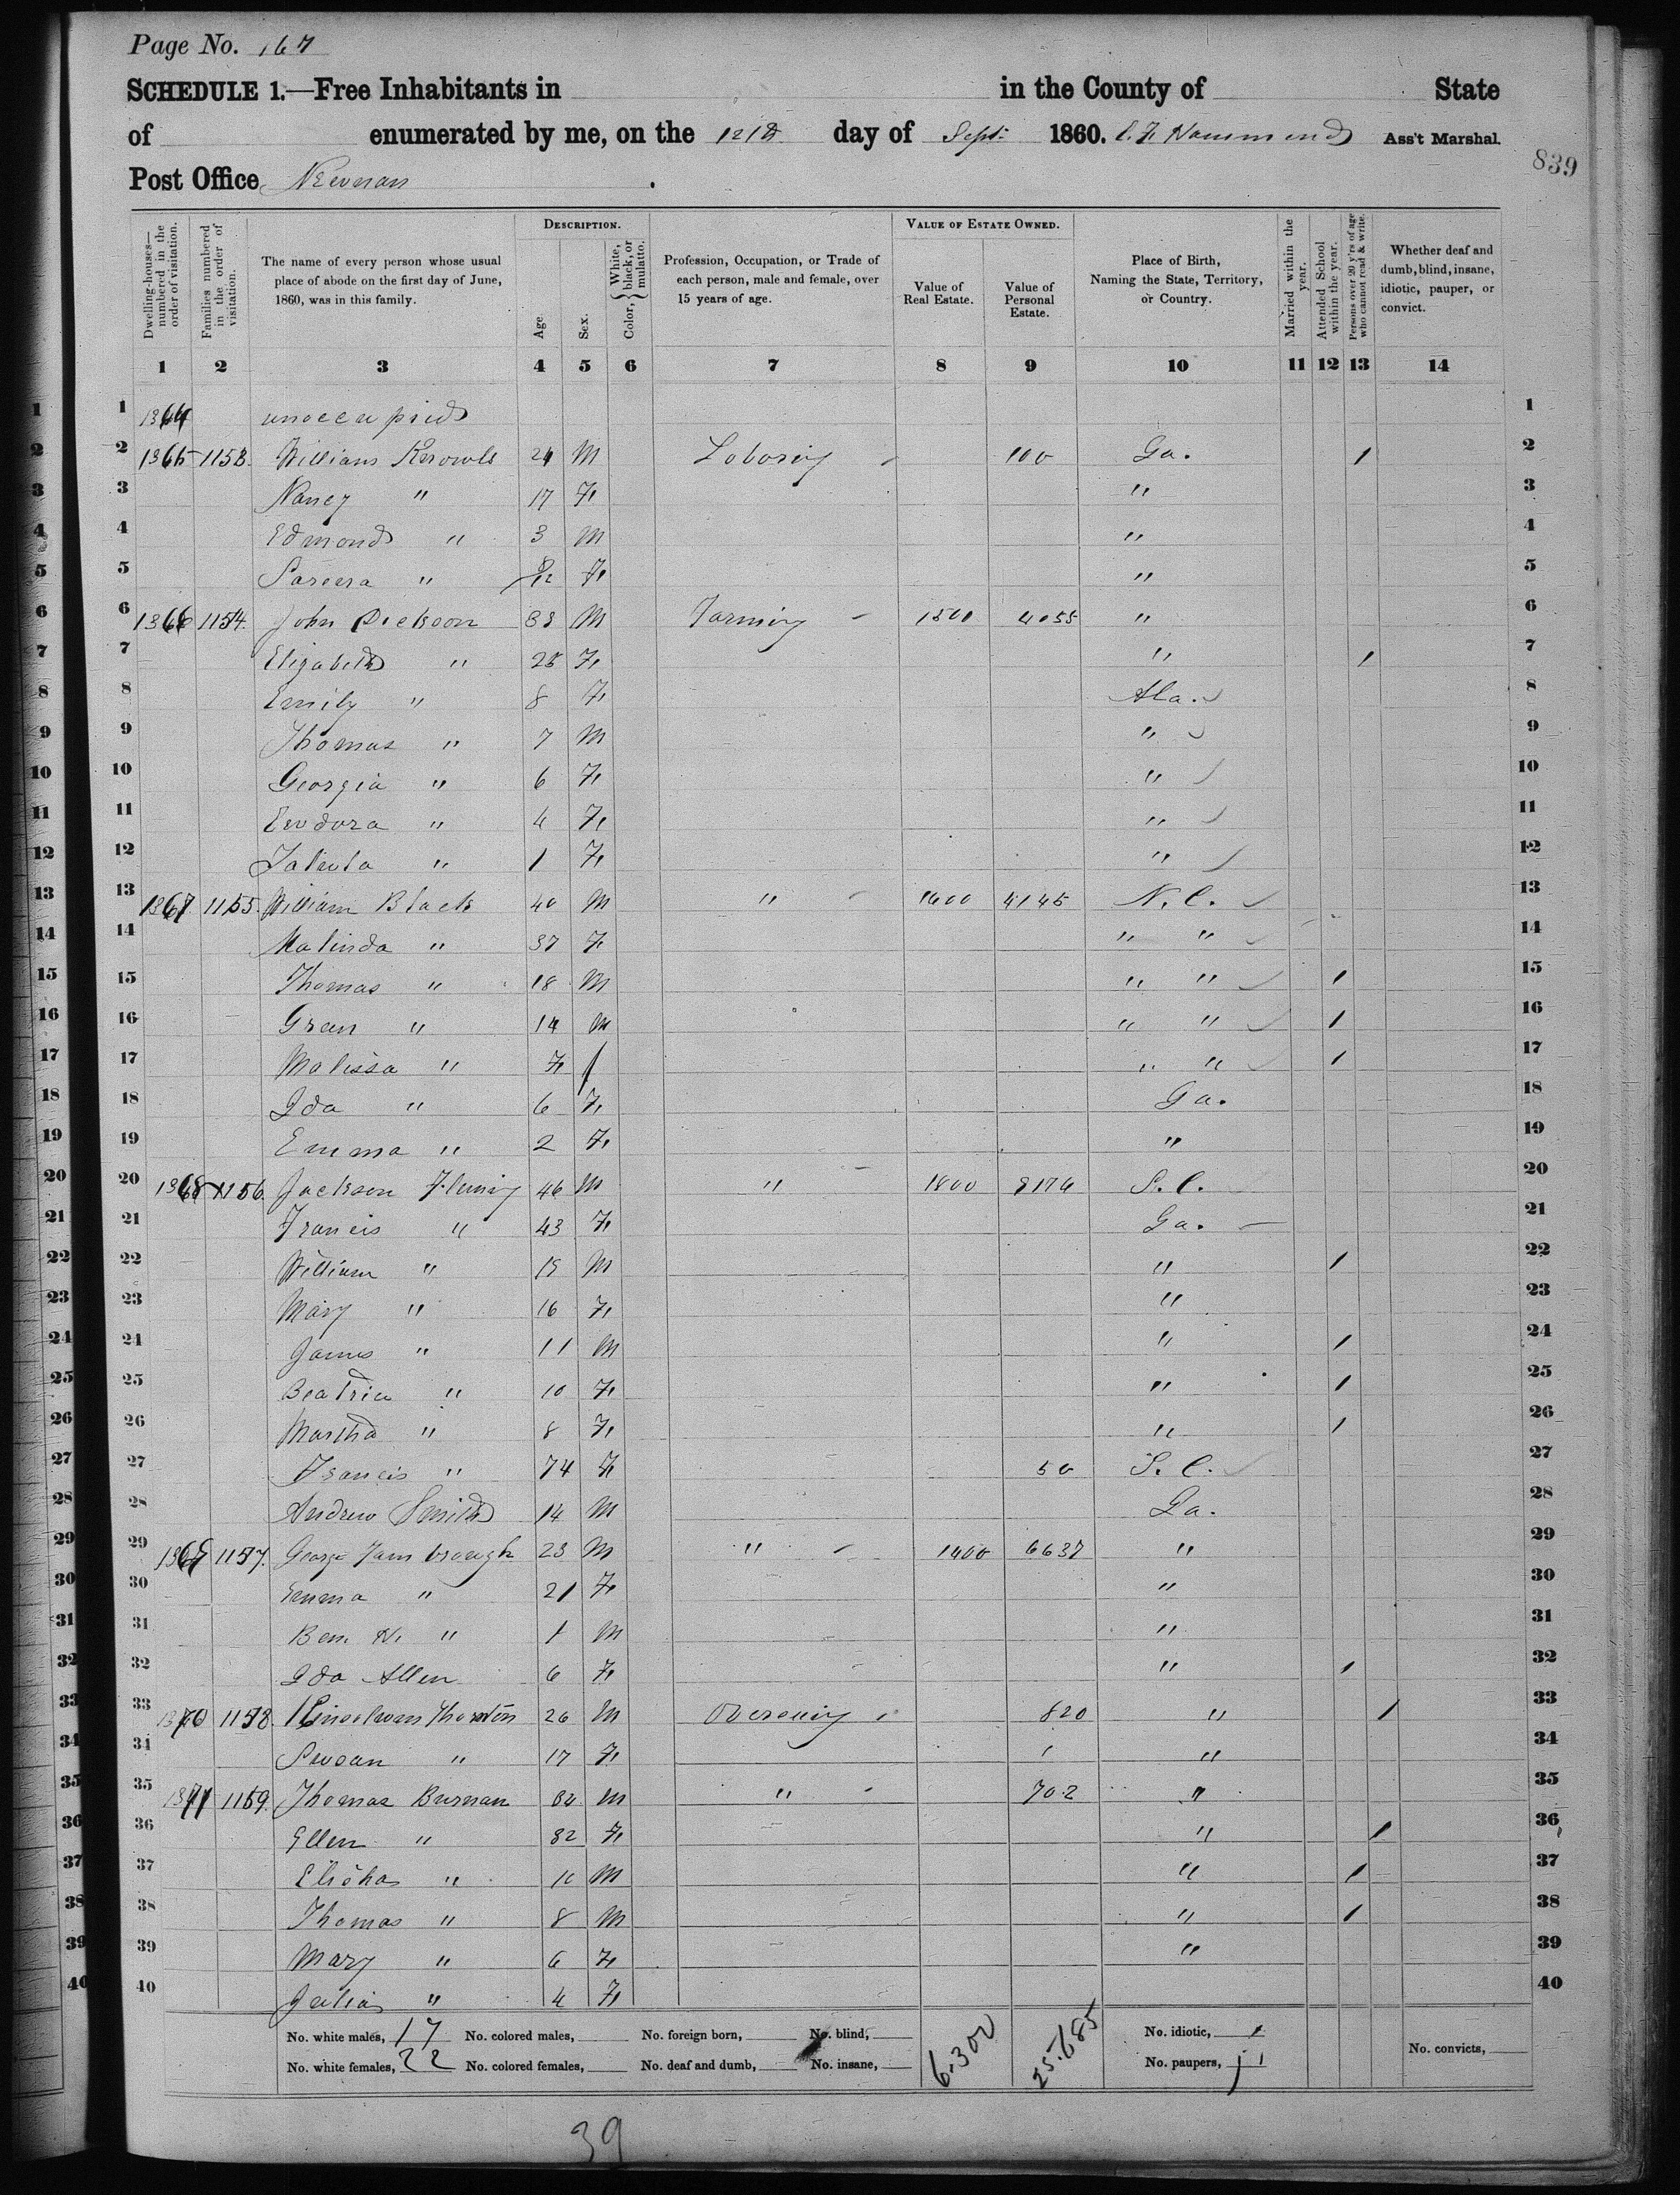 Page No. 167
SCHEDULE 1.—Free Inhabitants in in the County of State
of enumerated by me, on the 12th day of Sept. 1860. Hammond Ass't Marshal.
839
Post Office Newnan
Dwelling-houses—numbered in the order of visitation.
Families numbered in the order of visitation.
The name of every person whose usual place of abode on the first day of June, 1860, was in this family.
DESCRIPTION.
Age
Sex.
Color, White, black, or mulatto.
Profession, Occupation, or Trade of each person, male and female, over 15 years of age.
VALUE OF ESTATE OWNED.
Value of Real Estate.
Value of Personal Estate.
Place of Birth, Naming the State, Territory, or Country.
Married within the year.
Attended School within the year.
Persons over 20 y'rs of age who cannot read & write.
Whether deaf and dumb, blind, insane, idiotic, pauper, or convict.
1 2 3 4 5 6 7 8 9 10 11 12 13 14
1 1364 unoccupied 1
2 1365 1153. William Knowls 24 M Laboring 100 Ga. 1 2
3 Nancy " 17 F " 3
4 Edmond " 3 M " 4
5 " /12 F " 5
6 1366 1154. John Dickson 33 M Farming 1500 4055 " 6
7 Elizabeth " 25 F " 1 7
8 Emily " 8 F Ala. 8
9 Thomas " 7 M " 9
10 Georgia " 6 F " 10
11 Eudora " 4 F " 11
12 " 1 F " 12
13 1367 1155. William Black 40 M " 1600 4145 N.C. 13
14 Malinda " 37 F " " 14
15 Thomas " 18 M " " 1 15
16 Green " 14 M " " 1 16
17 Malissa " f " " 1 17
18 Ida " 6 F Ga. 18
19 Emma " 2 F " 19
20 1368 1156. Jackson Fleming 46 M " 1800 8176 S.C. 20
21 Francis " 43 F Ga. 21
22 William " 18 M " 1 22
23 Mary " 16 F " 23
24 James " 11 M " 1 24
25 Beatrice " 10 F " 1 25
26 Martha " 8 F " 1 26
27 Francis " 74 F 50 S.C. 27
28 Andrew Smith 14 M Ga. 28
29 1369 1157. George Yarnbrough 23 M " 1400 6637 " 29
30 Emma " 21 F " 30
31 Ben. H. " 1 M " 31
32 Ida Allen 6 F " 1 32
33 1370 1158. Thornton 26 M Overseeing 820 " 1 33
34 Susan " 17 F " 34
35 1371 1159. Thomas Burnan 32 M " 702 " 35
36 Ellen " 32 F " 1 36
37 Elisha " 10 M " 1 37
38 Thomas " 8 M " 1 38
39 Mary " 6 F " 39
40 Julia " 4 F 40
No. white males, 17 No. colored males, No. foreign born, No. blind, 6.300 25.685 No. idiotic,
No. white females, 22 No. colored females, No. deaf and dumb, No. insane, No. paupers, No. convicts,
39